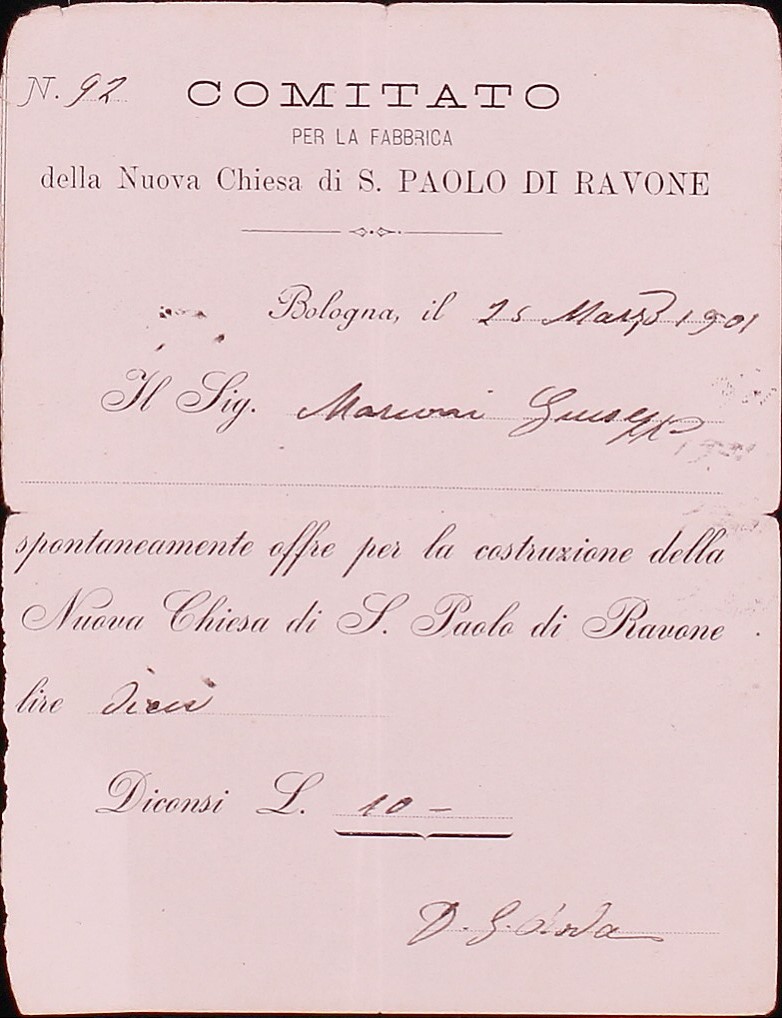 N. 92
COMITATO
PER LA FABBRICA
della Nuova Chiesa di S. PAOLO DI RAVONE
Bologna, il 25 Marzo 1901
Il Sig. Giuseppe
spontaneamente offre per la costruzione della
Nuova Chiesa di S. Paolo di Ravone
lire dieci
Diconsi L. 10 –
D. G.